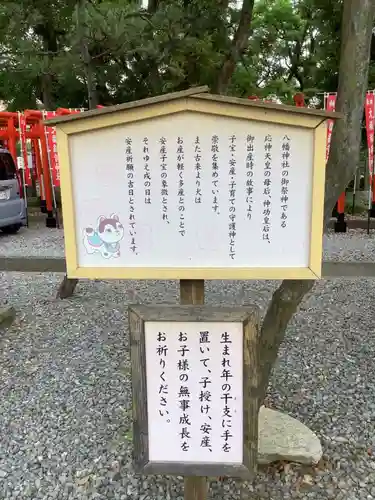 八幡神社の御祭神である
応神天皇の母后、神功皇后は、
御出産時の故事により
子宝・安産・子育ての守護神として
崇敬を集めています。
また古来より犬は
お産が軽く多産とのことで
安産子宝の象徴とされ、
それゆえ戌の日は
安産祈願の吉日とされています。
生まれ年の干支に手を
置いて、子授け、安産、
お子様の無事成長を
お祈りください。